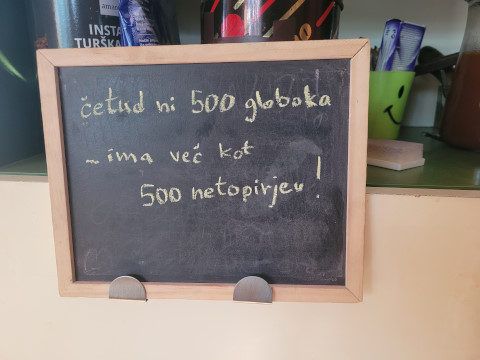 INSTA
TURŠKA
četud ni 500 globoka
... ima več kot
500 netopirjev!